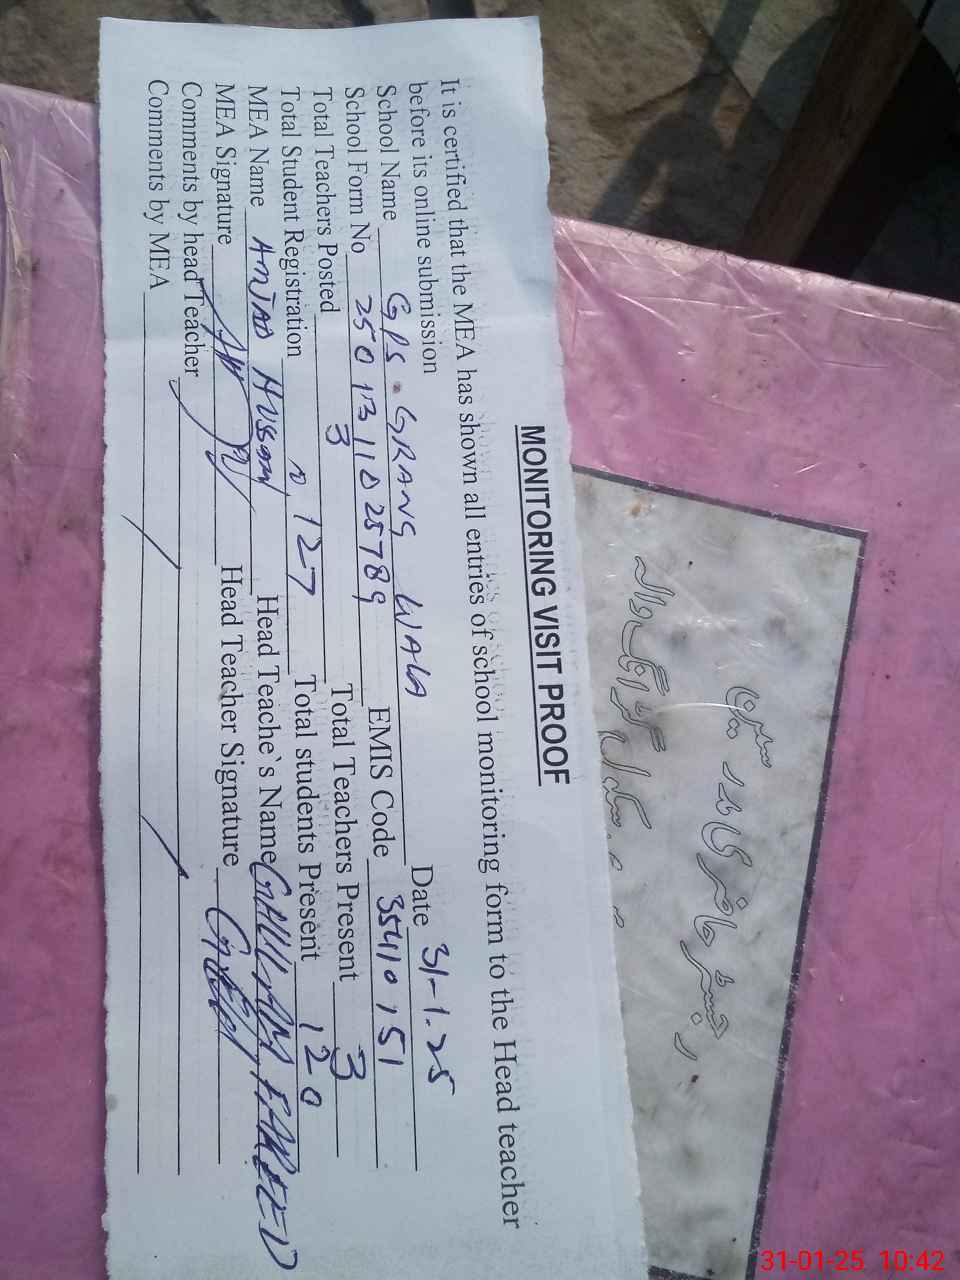 MONITORING VISIT PROOF
It is certified that the MEA has shown all entries of school monitoring form to the Head teacher
before its online submission
School Name GPS. GRANG WALA Date 31-1-25
School Form No 2501311025789 EMIS Code 35410151
Total Teachers Posted 3 Total Teachers Present 3
Total Student Registration 127 Total students Present 120
MEA Name AMJAD Hussain Head Teache`s Name GHULAM FAREED
MEA Signature Head Teacher Signature
Comments by head Teacher
Comments by MEA
رجسٹر حاضری مدرسین
31-01-25 10:42